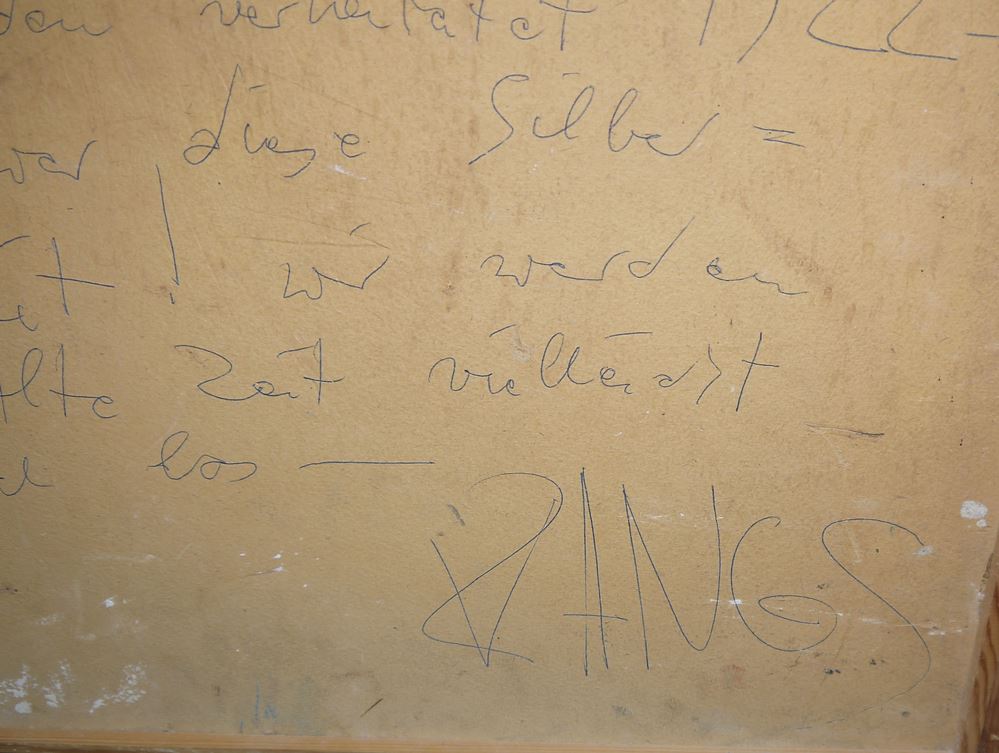 den verheiratet 1922-
war diese Silber =
! wir werden
alte Zeit vielleicht
los —
RANGS